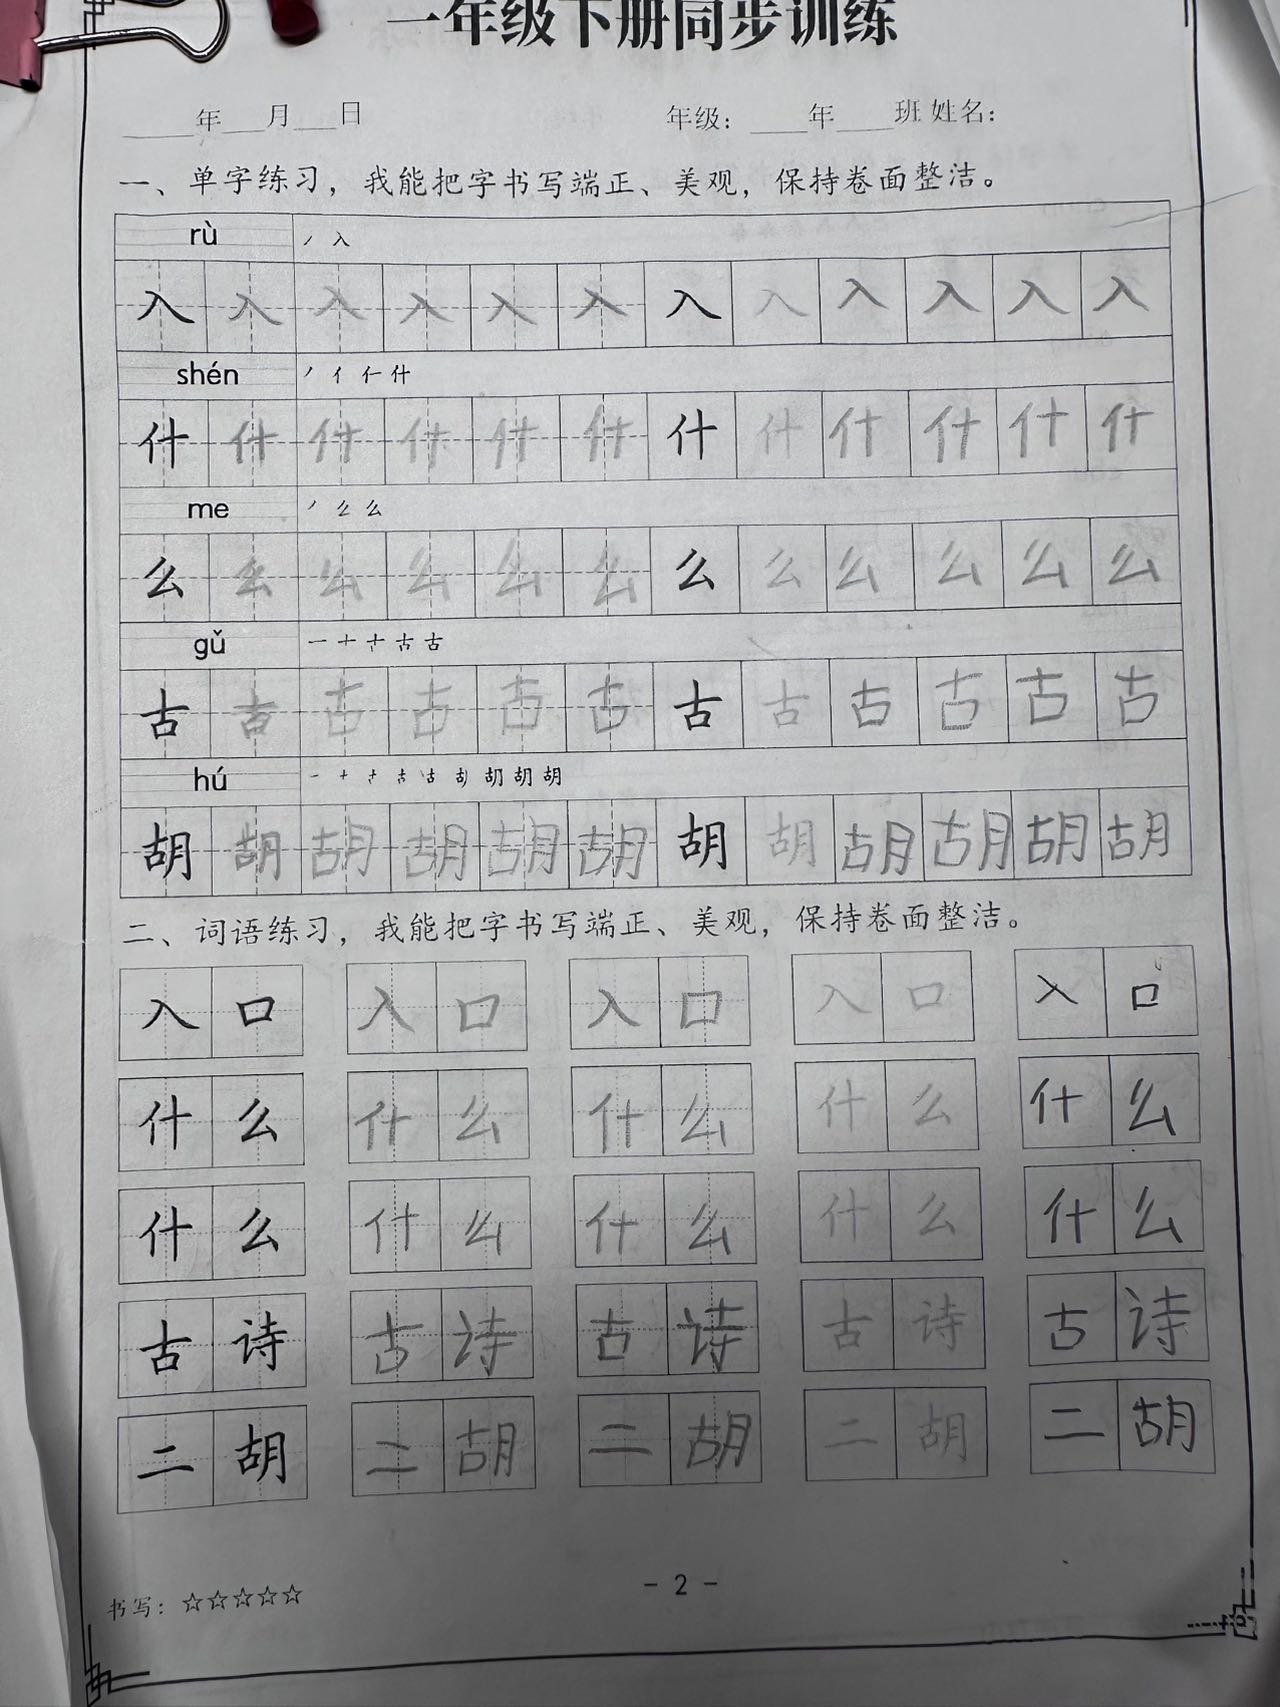 一年级下册同步训练
____年___月___日 年级：____年____班 姓名：
一、单字练习，我能把字书写端正、美观，保持卷面整洁。
rù 丿 入
入 入 入 入 入 入 入 入 入 入 入 入
shén 丿 亻 仁 什
什 什 什 什 什 什 什 什 什 什 什 什
me 丿 厶 么
么 么 么 么 么 么 么 么 么 么 么 么
gǔ 一 十 古 古
古 古 古 古 古 古 古 古 古 古 古 古
hú 一 十 古 胡 胡 胡
胡 胡 胡 胡 胡 胡 胡 胡 胡 胡 胡 胡
二、词语练习，我能把字书写端正、美观，保持卷面整洁。
入口 入口 入口 入口 入口
什么 什么 什么 什么 什么
什么 什么 什么 什么 什么
古诗 古诗 古诗 古诗 古诗
二胡 二胡 二胡 二胡 二胡
书写：☆☆☆☆☆
- 2 -